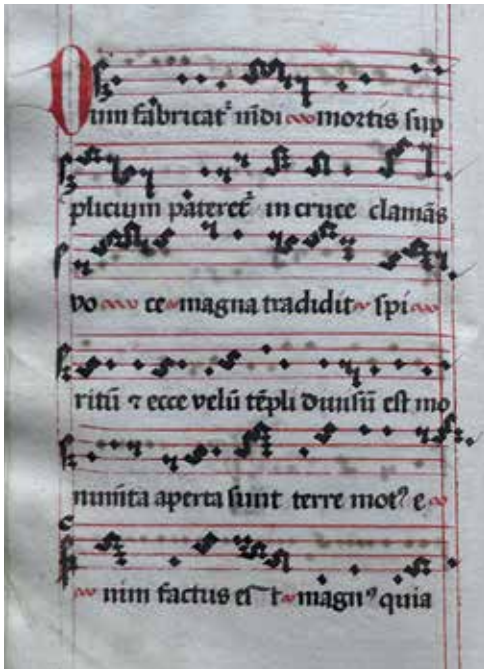 Dum fabricat᷑ mūdi mortis sup
plicium pateret᷑ in cruce clamās
vo ce magna tradidit spi
ritū ⁊ ecce velū tēpli diuisū est mo
numēta aperta sunt terre motꝰ e
nim factus est magnꝰ quia